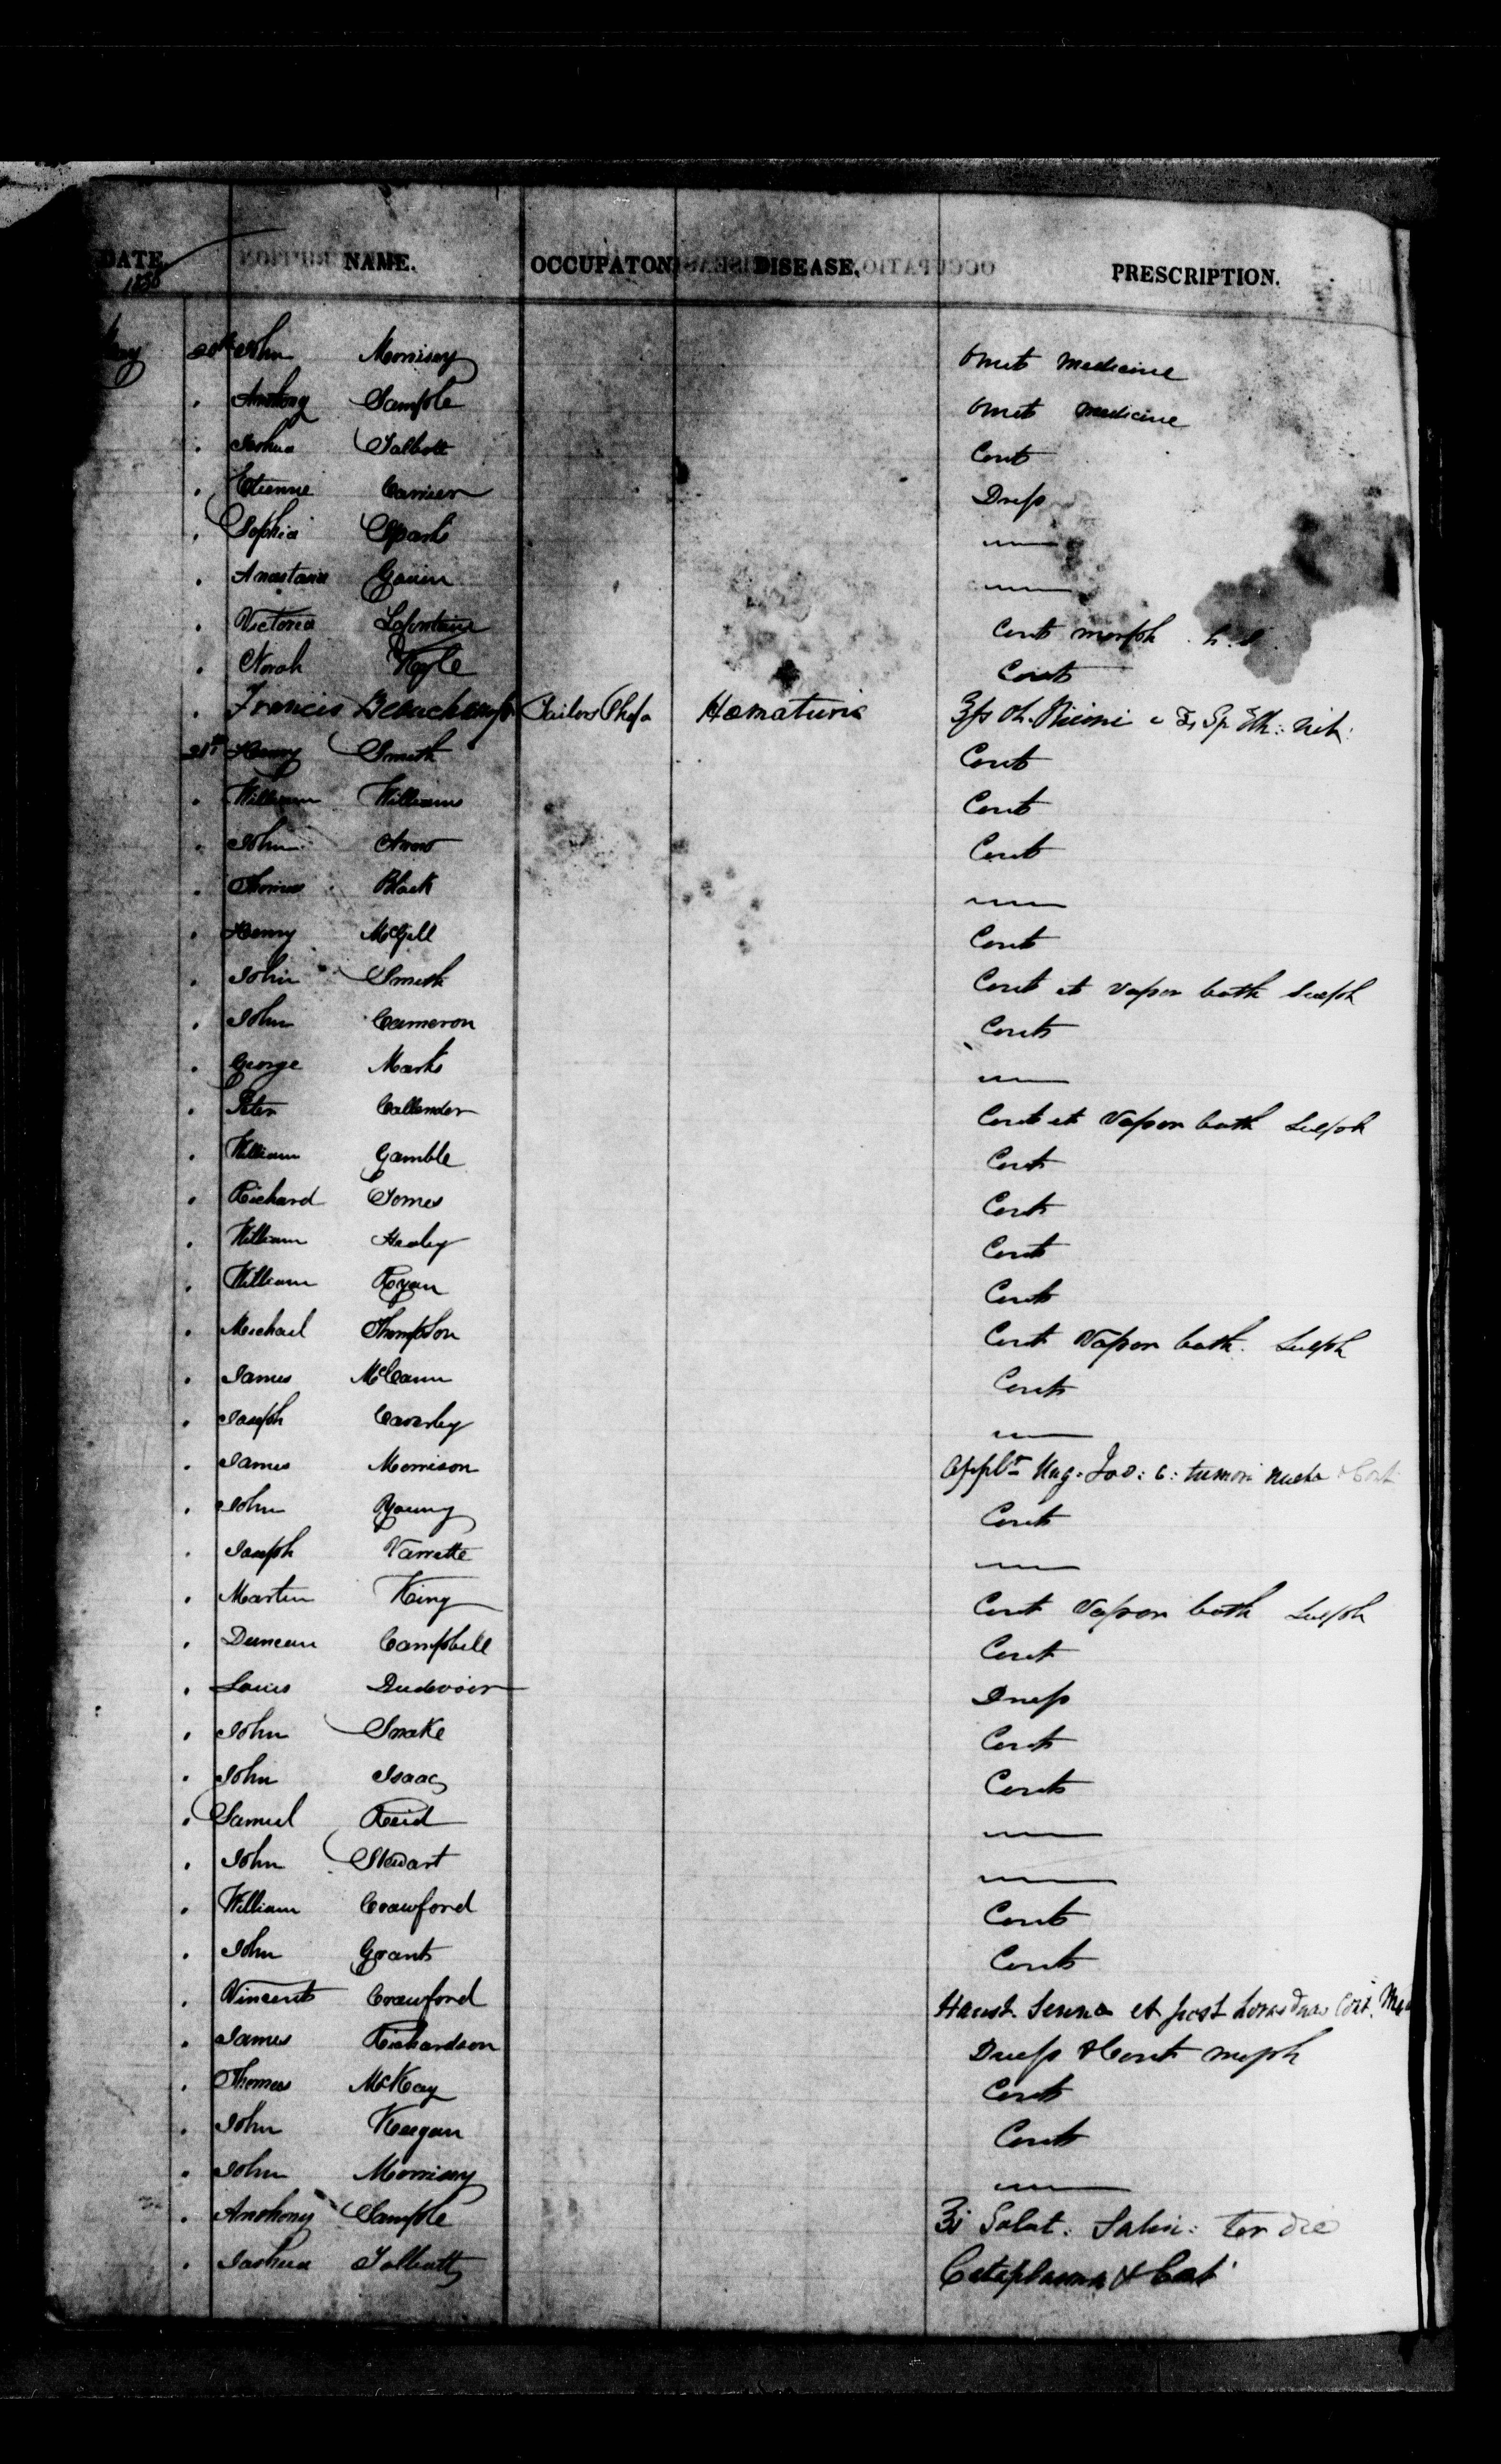 DATE. NAME. OCCUPATON DISEASE. PRESCRIPTION.
20th John Morrisey Omit Medicine
" Anthony Sample Omit medicine
" Joshua Talbott Cont
" Etienne Carrier Dress
" Sophia Spark
" Anastasia Gavin
" Victoria Lafontaine Cont morph h.s.
" Norah Kyle Cont
" Francis Beauchamp Tailors Shop Hematuria Ol. Ricini c Sp Eth: Nit:
21st Henry Smith Cont
" William Williams Cont
" John Cont
" Thomas Black
" Henry McGill Cont
" John Smith Cont et Vapor bath Sulph
" John Cameron Cont
" George Marks
" Peter Callender Cont et Vapor bath Sulph
" William Gamble Cont
" Richard Jones Cont
" William Healey Cont
" William Ryan Cont
" Michael Thompson Cont Vapor bath. Sulph
" James McCann Cont
" Joseph Caverley
" James Morrison Ung: Iod: c: tumori & Cont
" John Young Cont
" Joseph Varrette
" Martin King Cont Vapor bath Sulph
" Duncan Campbell Cont
" Louis Dudevoir Dress
" John Snake Cont
" John Isaac Cont
" Samuel Reid
" John Stewart
" William Crawford Cont
" John Grant Cont
" Vincent Crawford Haust. Senna et post horas duas Cont.
" James Richardson Dress & Cont morph
" Thomas McKay Cont
" John Keegan Cont
" John Morrisey
" Anthony Sample Solut. Salin: ter die
" Joshua Talbott Cataplasma & Cont